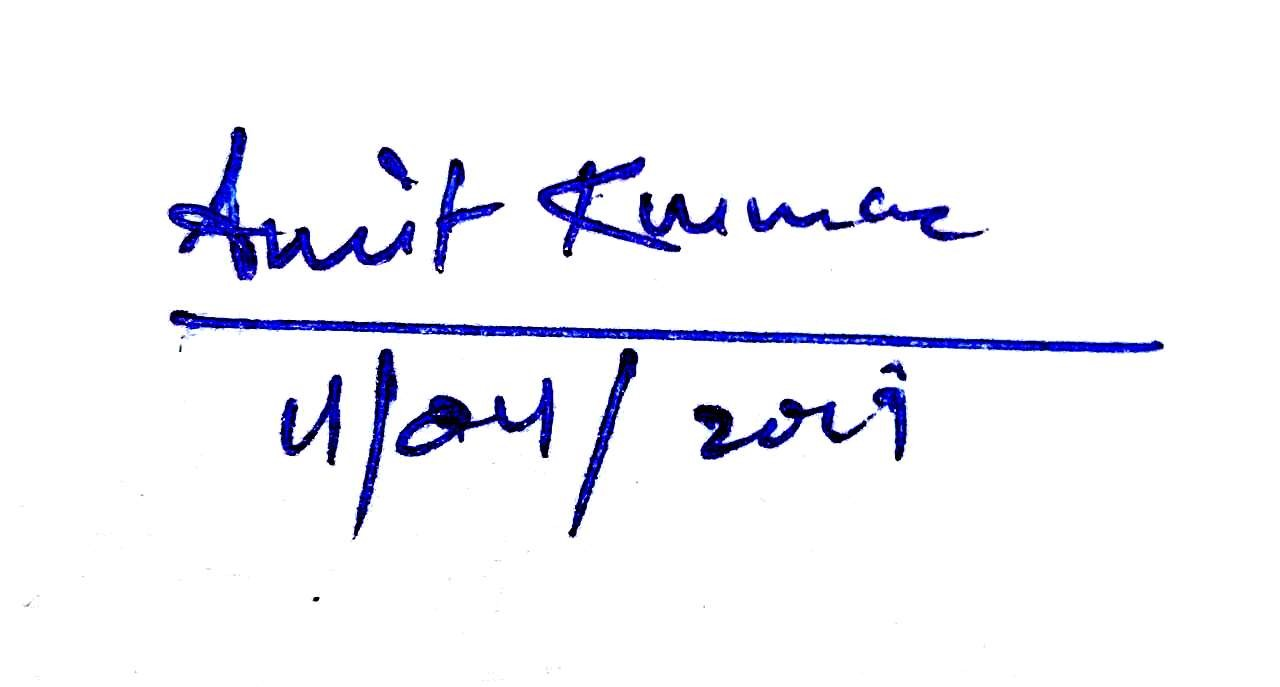 Amit Kumar
4/04/2019